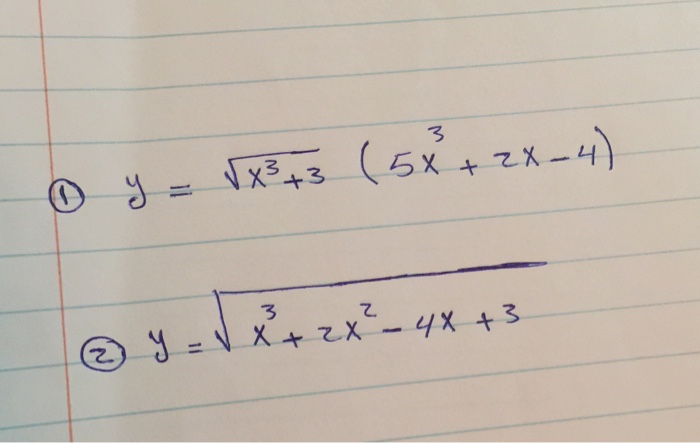 ① y = √(x³+3) (5x³ + 2x - 4)
② y = √(x³ + 2x² - 4x + 3)